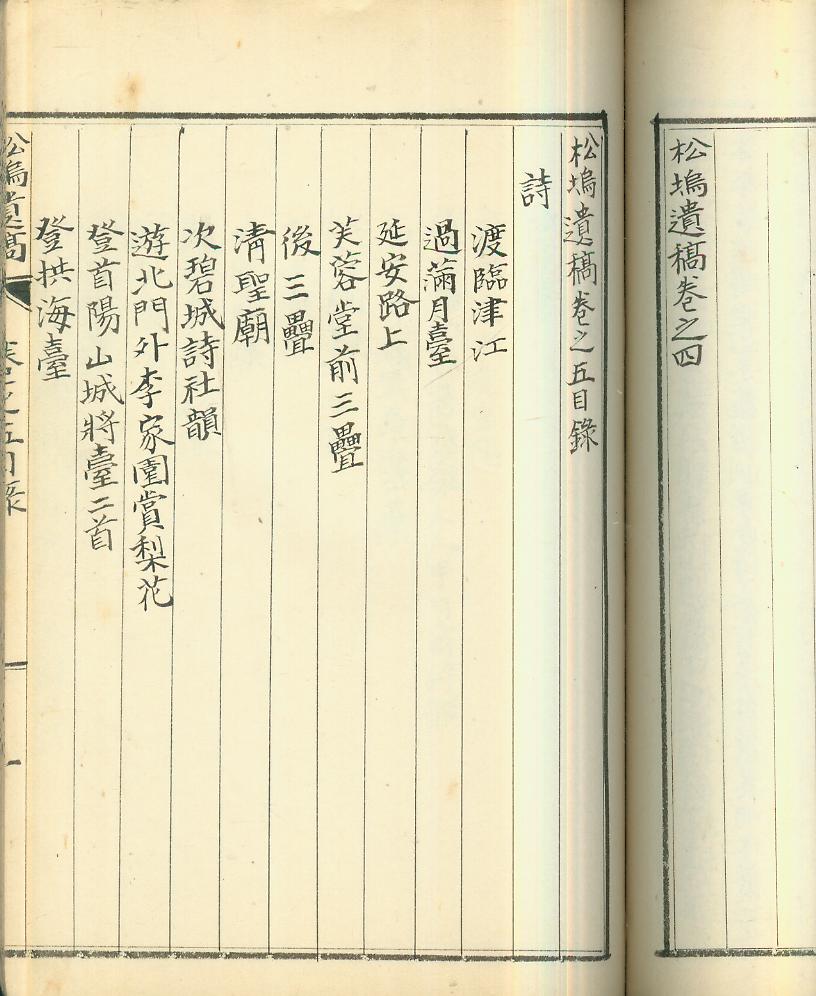 松塢遺稿卷之四
松塢遺稿卷之五目錄
詩
渡臨津江
過滿月臺
延安路上
芙蓉堂前三疊
後三疊
淸聖廟
次碧城詩社韻
遊北門外李家園賞梨花
登首陽山城將臺二首
登拱海臺
松塢遺稿 卷之五目錄